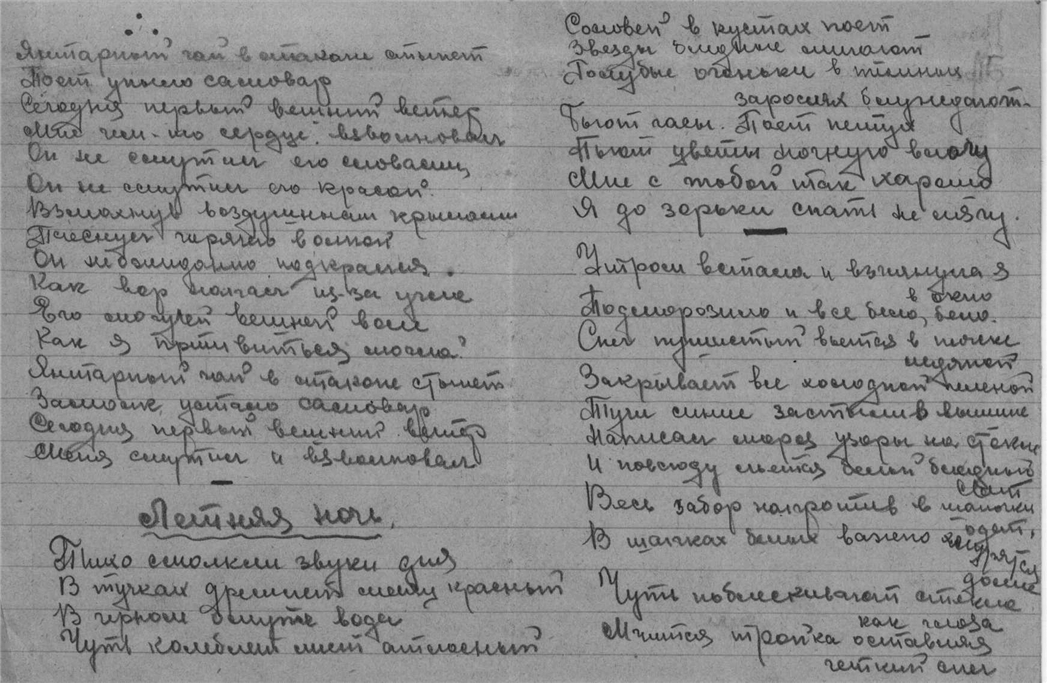 Янтарный чай в стакане стынет
Поет уныло самовар
Сегодня первый вешний ветер
Мне чем-то сердце взволновал
Он не смутил его словами
Он не смутил его красой
Взмахнув воздушными крылами
Плеснул горячею волной
Он неожиданно подкрался
Как вор ночлег из-за угла
Его могучей вешней воле
Как я противиться могла?
Янтарный чай в стакане стынет
Замолк устало самовар
Сегодня первый вешний ветер
Меня смутил и взволновал
Летняя ночь.
Тихо смолкли звуки дня
В тучках дремлет месяц красный
В черном омуте вода
Чуть колеблет лист атласный
Соловей в кустах поет
Звезды бледные мигают
Голубые огоньки в темных
зарослях блуждают.
Бьют часы. Поет петух
Пьют цветы ночную влагу
Мне с тобой так хорошо
Я до зорьки спать не лягу.
Утром встала и взглянула я
в окно
Подморозило и все бело, бело.
Снег пушистый вьется в пляске
ледяной
Закрывает все холодной пеленой
Тучи синие застыли в вышине
Написал мороз узоры на стекле
И повсюду льется белый бледный
свет
Весь забор напротив в шапочки
одет,
В шапках белых важно хмурятся
дома
Чуть поблескивают стекла
как глаза
Мчится тройка оставляя
четкий след